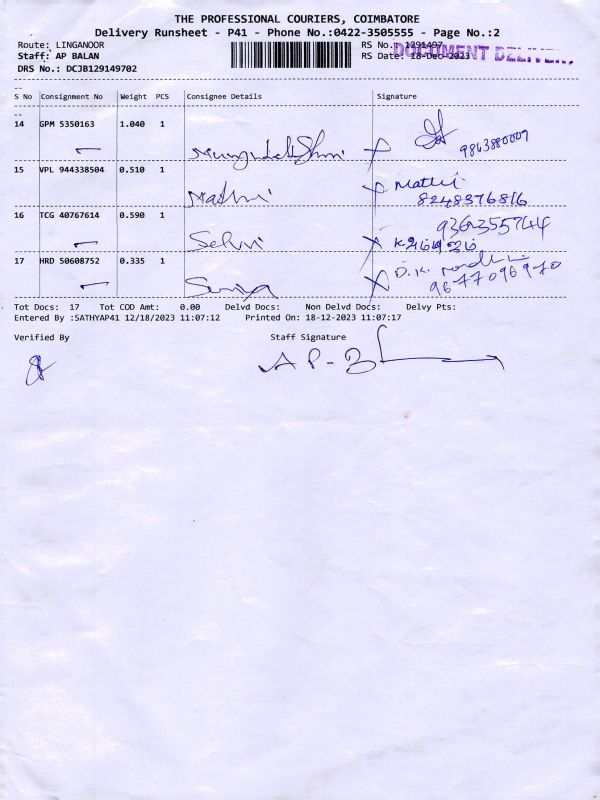 THE PROFESSIONAL COURIERS, COIMBATORE
Delivery Runsheet - P41 - Phone No.:0422-3505555 - Page No.:2
Route: LINGANOOR
RS No.: 1291497
Staff: AP BALAN
RS Date: 18-Dec-2023
DOCUMENT DELIVERY
DRS No.: DCJB129149702
S No Consignment No Weight PCS Consignee Details Signature
14 GPM 5350163 1.040 1
15 VPL 944338504 0.510 1
Mathi
Mathi
8248376816
16 TCG 40767614 0.590 1
9363555744
Selvi
17 HRD 50608752 0.335 1
D.K.
9677096970
Surya
Tot Docs: 17 Tot COD Amt: 0.00 Delvd Docs: Non Delvd Docs: Delvy Pts:
Entered By :SATHYAP41 12/18/2023 11:07:12 Printed On: 18-12-2023 11:07:17
Verified By Staff Signature
A P - B